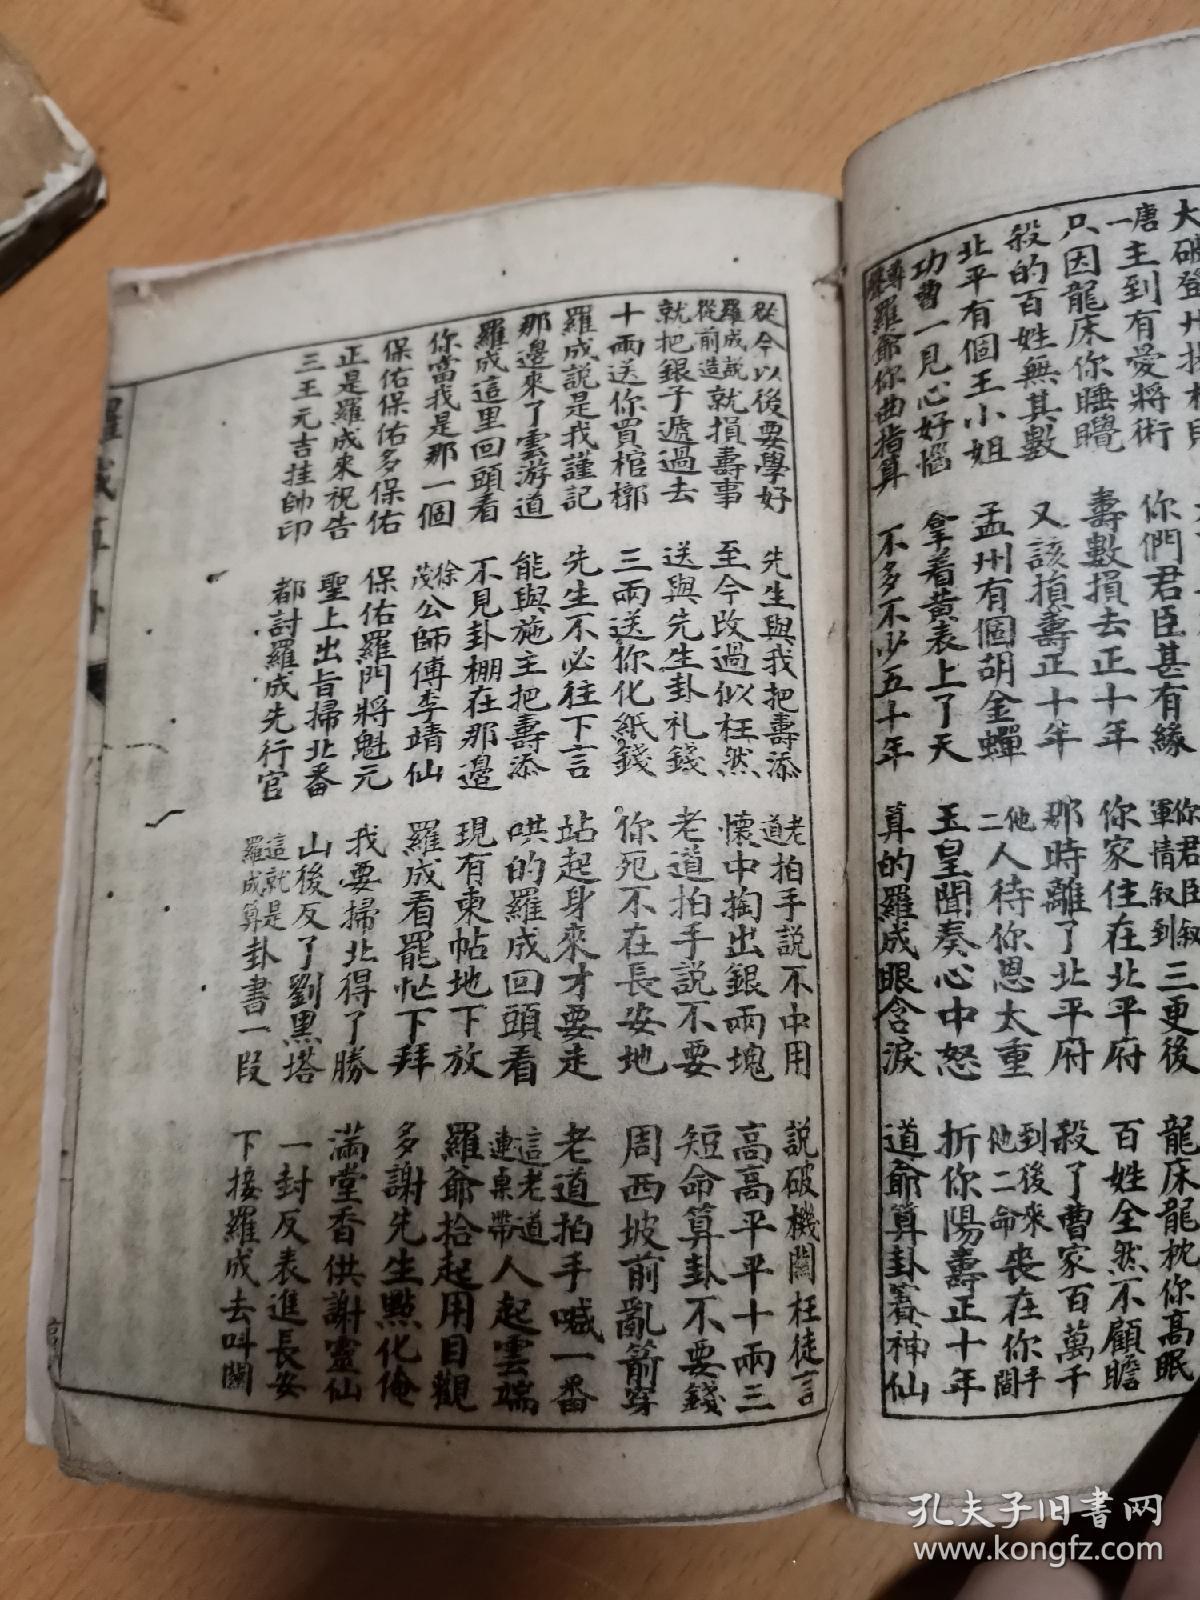 唐一主到有愛將術　你們君臣甚有緣　你君臣叙軍情叙到三更後　龍床龍枕你高眠
只因龍床你睡覺　壽數損去正十年　你家住在北平府　百姓全然不顧瞻
殺的百姓無其數　又該損壽正十年　那時離了北平府　殺了曹家百萬千
北平有個王小姐　孟州有個胡金蟬　他二人待你恩太重　到後來他二命喪在你手間
功曹一見心好惱　拿着黃表上了天　玉皇聞奏心中怒　折你陽壽正十年
尊聲羅爺你曲指算　不多不少五十年　算的羅成眼含淚　道爺算卦賽神仙
從今以後要學好　先生與我把壽添　老道拍手説不中用　説破機關枉徒言
羅成説從前造就損壽事　至今改過似枉然　懷中掏出銀兩塊　高高平平十兩三
就把銀子遞過去　送與先生卦礼錢　老道拍手説不要　短命算卦不要錢
十兩送你買棺槨　三兩送你化紙錢　你死不在長安地　周西坡前亂箭穿
羅成説是我謹記　先生不必往下言　站起身來才要走　老道拍手喊一番
那邊來了雲游道　能與施主把壽添　哄的羅成回頭看　這老道連桌帶人起雲端
羅成這里回頭看　不見卦棚在那邊　現有柬帖地下放　羅爺拾起用目觀
你當我是那一個　徐茂公師傅李靖仙　羅成看罷忙下拜　多謝先生點化俺
保佑保佑多保佑　保佑羅門將魁元　我要掃北得了勝　滿堂香供謝靈仙
正是羅成來祝告　聖上出旨掃北番　山後反了劉黑塔　一封反表進長安
三王元吉挂帥印　都討羅成先行官　這就是羅成算卦書一段　下接羅成去叫關
羅成算卦
孔夫子旧书网
www.kongfz.com